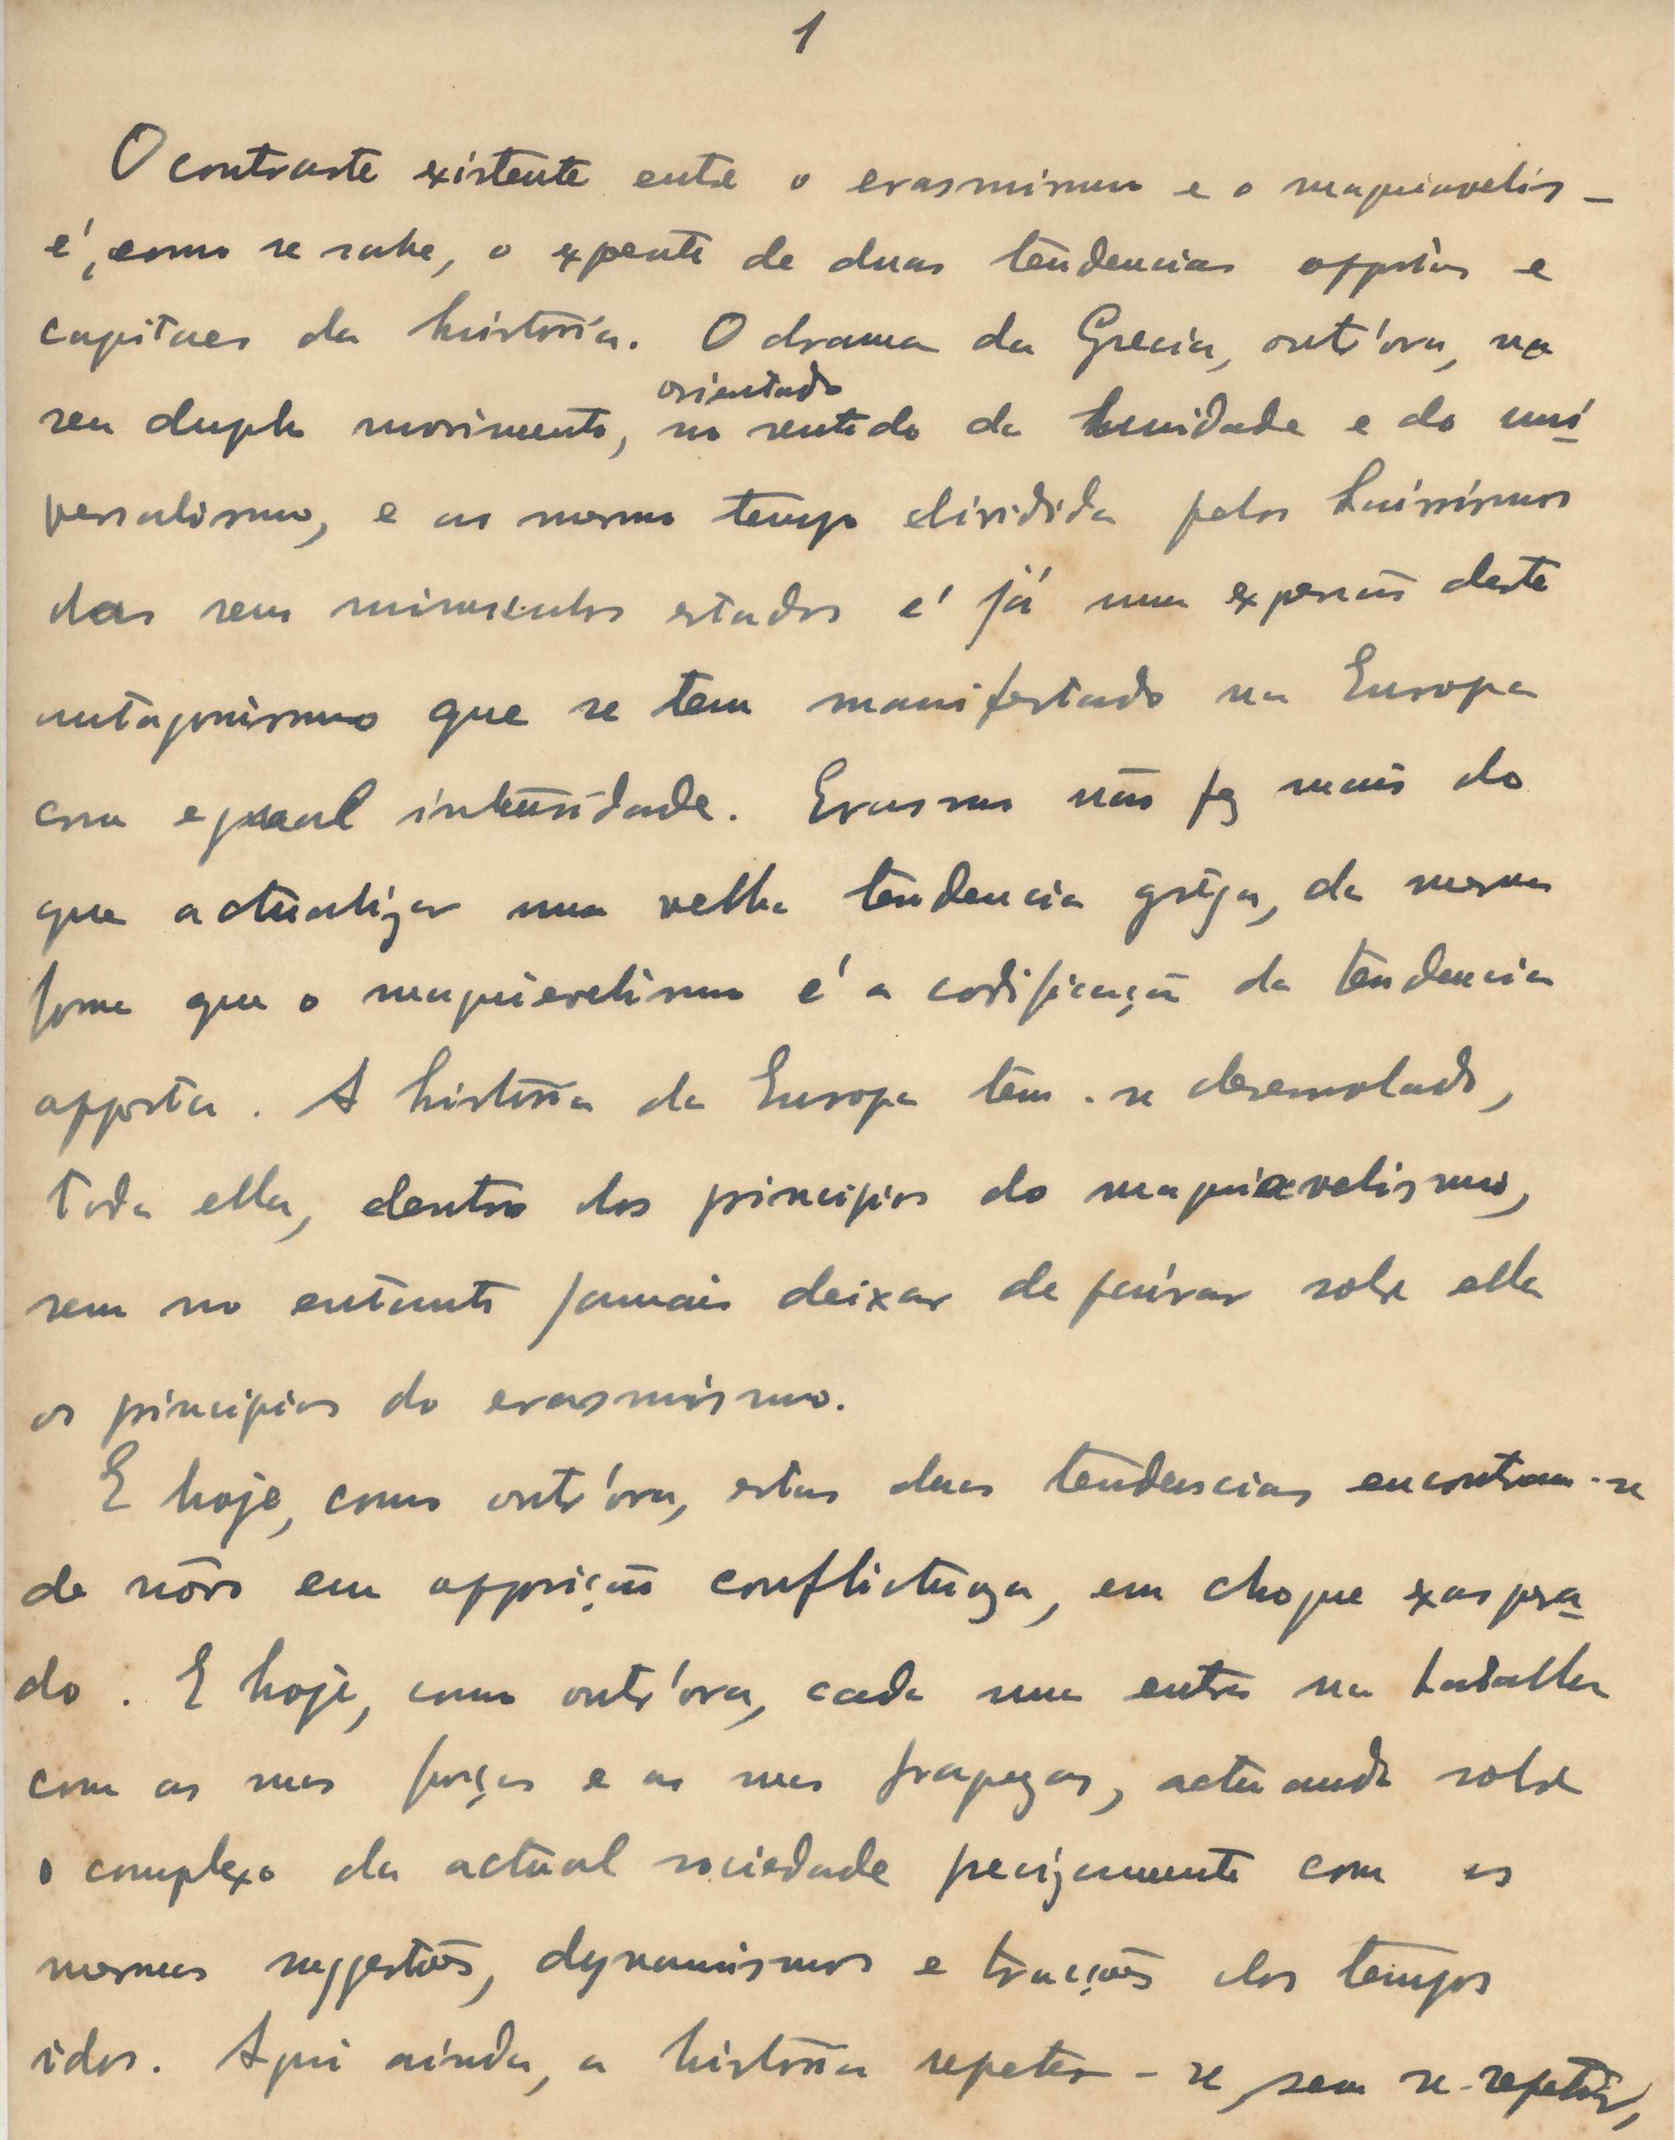 1
O contraste existente entre o erasmismo e o maquiavelis-
é, como se sabe, o expoente de duas tendencias oppostas e
capitaes da história. O drama da Grecia, outr'ora, no
orientado
seu duplo movimento, no sentido da unidade e do uni
versalismo, e ao mesmo tempo dividida pelos bairrismos
dos seus minusculos estados é já uma expressão deste
antagonismo que se tem manifestado na Europa
com egual intensidade. Erasmo não fez mais do
que actualizar uma velha tendencia grêga, da mesma
forma que o maquiavelismo é a codificação da tendencia
opposta. A história da Europa tem-se desenrolado,
toda ella, dentro dos principios do maquiavelismo,
sem no entanto jamais deixar de pairar sobre ella
os principios do erasmismo.
E hoje, como outr'ora, estas duas tendencias encontram-se
de nôvo em opposição conflictuoza, em choque exaspera
do. E hoje, como outr'ora, cada uma entra na batalha
com as suas forças e as suas fraquezas, actuando sobre
o complexo da actual sociedade precizamente com os
mesmas suggestões, dynamismos e tracções dos tempos
idos. Aqui ainda, a história repete-se, sem se repetir,